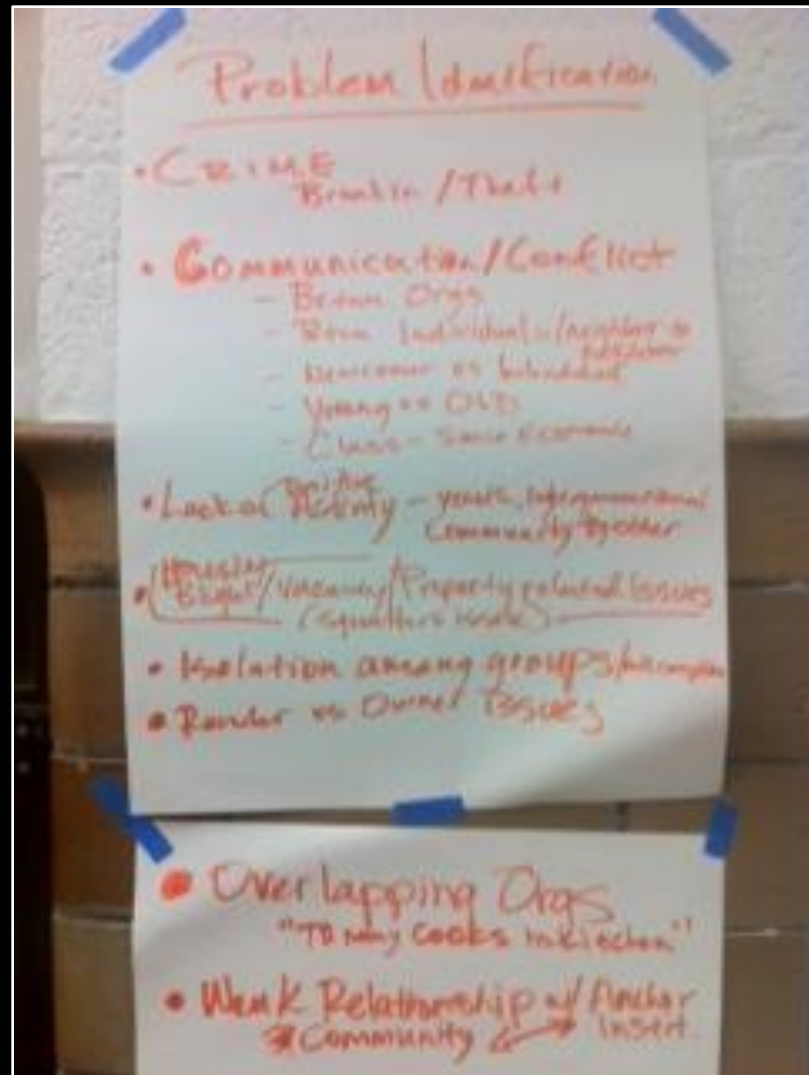 Problem Identification
• CRIME
Breakin / Theft
• Communication/Conflict
- Betwn Orgs
- Betwn Individuals/neighbor to
neighbor
- Newcomer vs
- Young vs Old
- Class - Socio Economic
positive
• Lack of Activity - youth, intergenerational
Community together
Housing
• Blight/Vacancy/Property related issues
(squatters issue)
• Isolation among groups/
• Renter vs Owner Issues
• Overlapping Orgs
"To many Cooks in kitchen"
• Weak Relationship w/ Anchor
Community Instit.